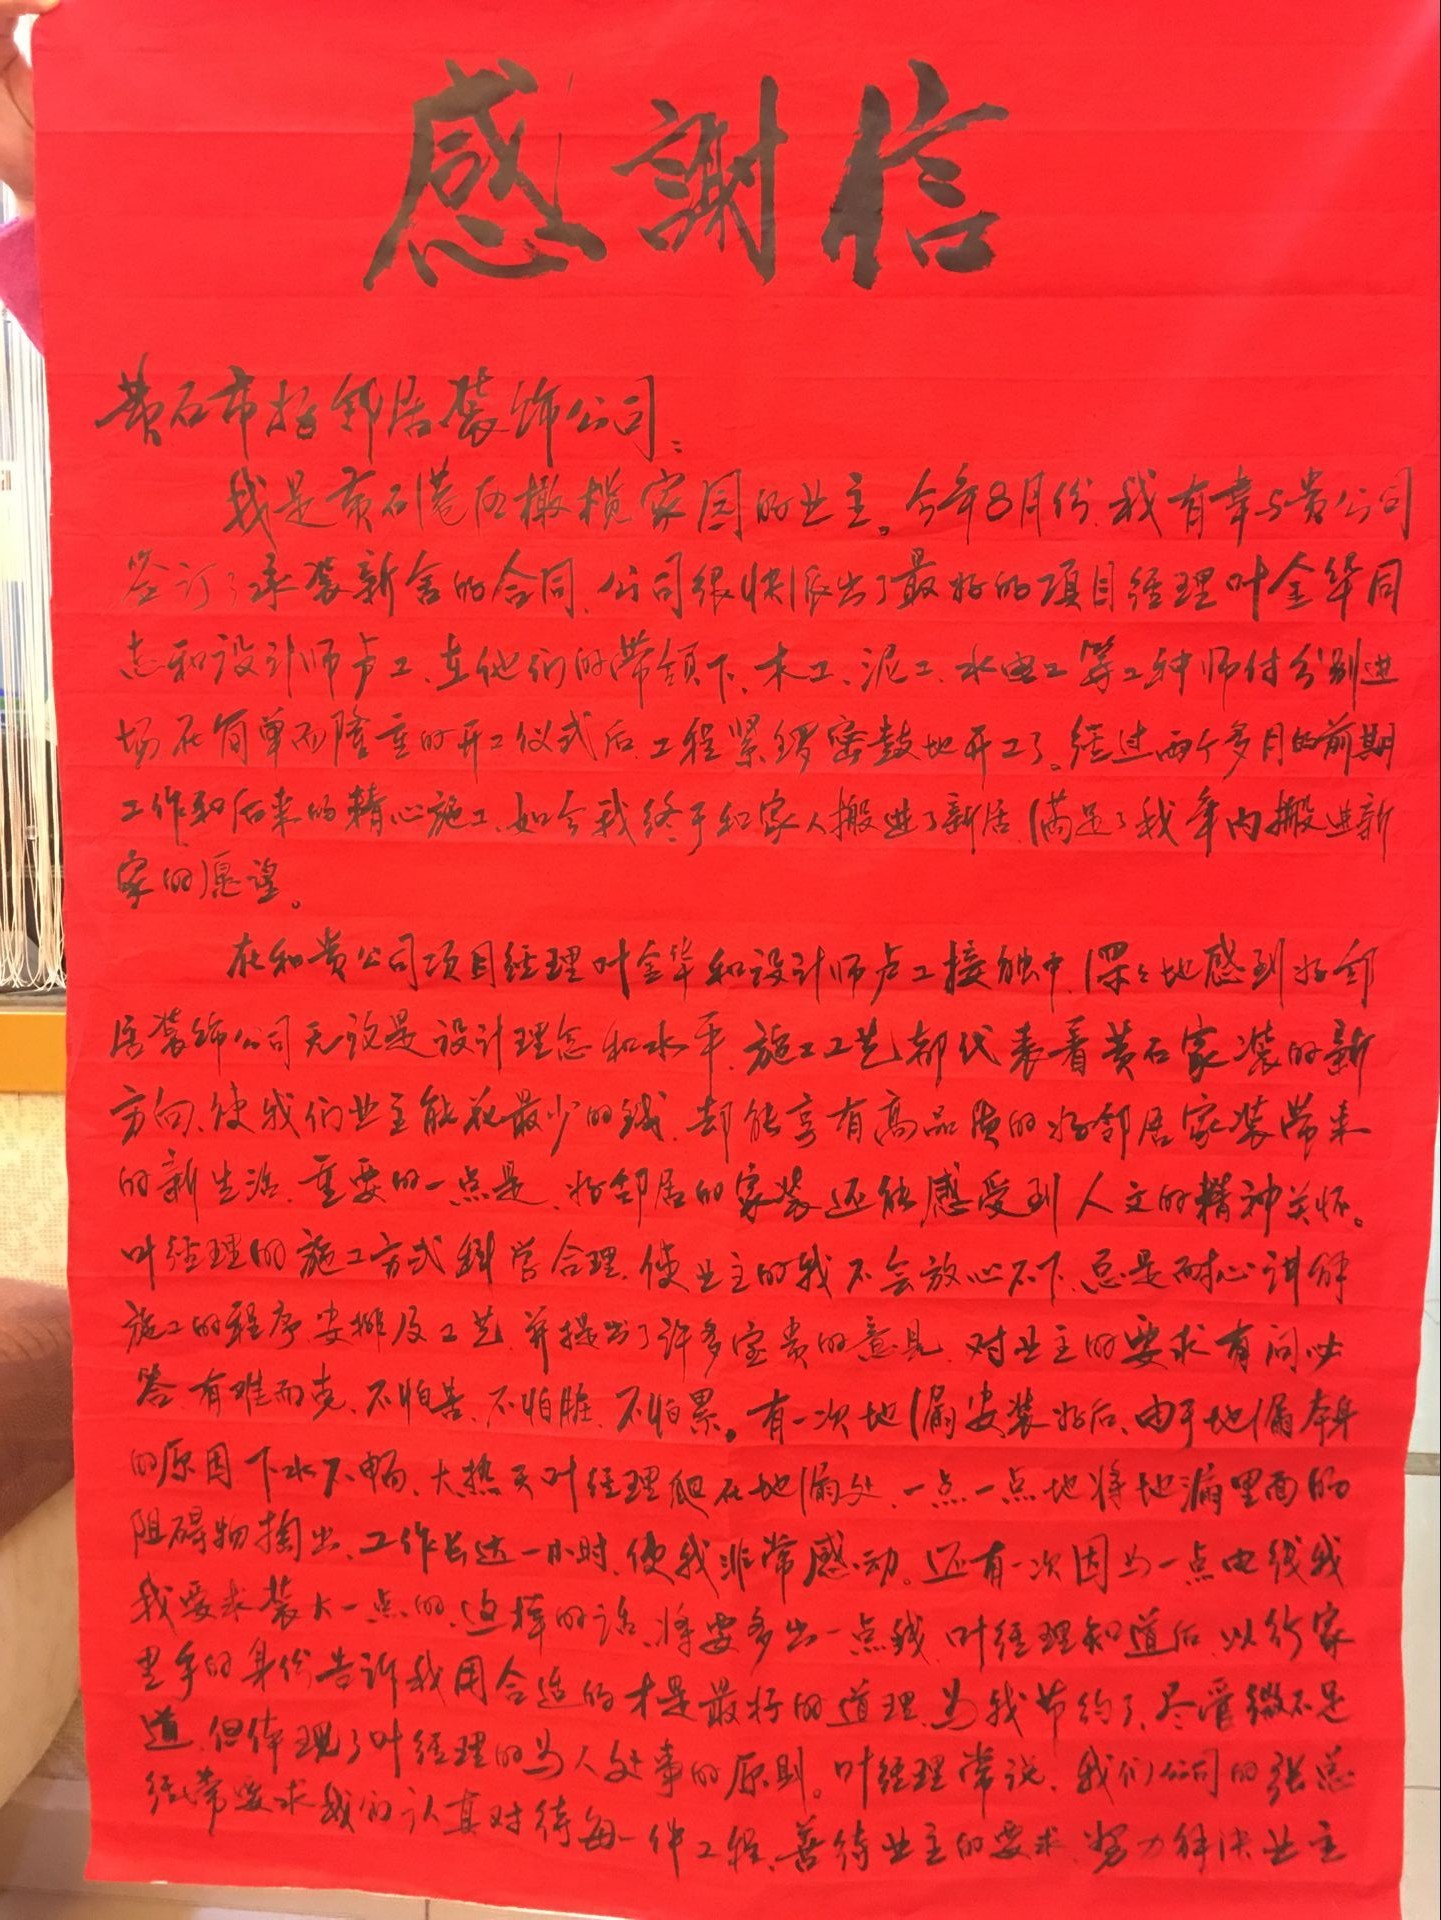 感謝信
黄石市好邻居装饰公司：
我是黄石港区橄榄家园的业主。今年8月份，我有幸与贵公司
签订了承装新舍的合同，公司很快派出了最好的项目经理叶金华同
志和设计师卢工、在他们的带领下，木工、泥工、水电工等工种师付分别进
场在简单而隆重的开工仪式后，工程紧锣密鼓地开工了。经过两个多月的前期
工作和后来的精心施工，如今我终于和家人搬进了新居，满足了我年内搬进新
家的愿望。
在和贵公司项目经理叶金华和设计师卢工接触中，深深地感到好邻
居装饰公司无论是设计理念和水平，施工工艺都代表着黄石家装的新
方向，使我们业主能花最少的钱，却能享有高品质的好邻居家装带来
的新生活，重要的一点是，好邻居的家装还能感受到人文的精神关怀。
叶经理的施工方式科学合理，使业主的我不会放心不下，总是耐心讲解
施工的程序安排及工艺，并提出了许多宝贵的意见，对业主的要求有问必
答，有难而克，不怕苦、不怕脏、不怕累。有一次地漏安装好后，由于地漏本身
的原因下水不畅，大热天叶经理爬在地漏处，一点一点地将地漏里面的
阻碍物掏出，工作长达一小时，使我非常感动。还有一次因为一点电线我
我要求装大一点的，这样的话，将要多出一点钱，叶经理知道后，以行家
里手的身份告诉我用合适的才是最好的道理，为我节约了，尽管微不足
道，但体现了叶经理的为人处事的原则。叶经理常说，我们公司的张总
经常要求我们认真对待每一件工程，善待业主的要求，努力解决业主